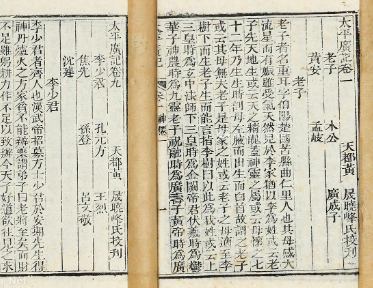 太平廣記卷一
天都黃　晟曉峰氏校刊
老子　木公　廣成子
黃安　孟岐
老子
老子者名重耳字伯陽楚國苦縣曲仁里人也其母感大
流星而有娠雖受氣天然見於李家猶以李為姓或云老
子先天地生或云天之精魄蓋神靈之屬或云母懷之七
十二年乃生生時剖母左腋而出生而白首故謂之老子
或云其母無夫老子是母家之姓或云老子之母適至李
樹下而生老子生而能言指李樹曰以此為我姓或云上
三皇時為玄中法師下三皇時為金闕帝君伏羲時為鬱
華子神農時為九靈老子祝融時為廣壽子黃帝時為廣
太平廣記卷九
天都黃　晟曉峰氏校刊
李少君　孔元方　王烈
焦先　孫登　呂文敬
沈建
李少君
李少君者齊人也漢武帝招募方士少君於安期先生得
神丹爐火之方家貧不能辦藥謂弟子曰老將至矣而財
不足雖躬耕力作不足以致辦今天子好道欲往見之求